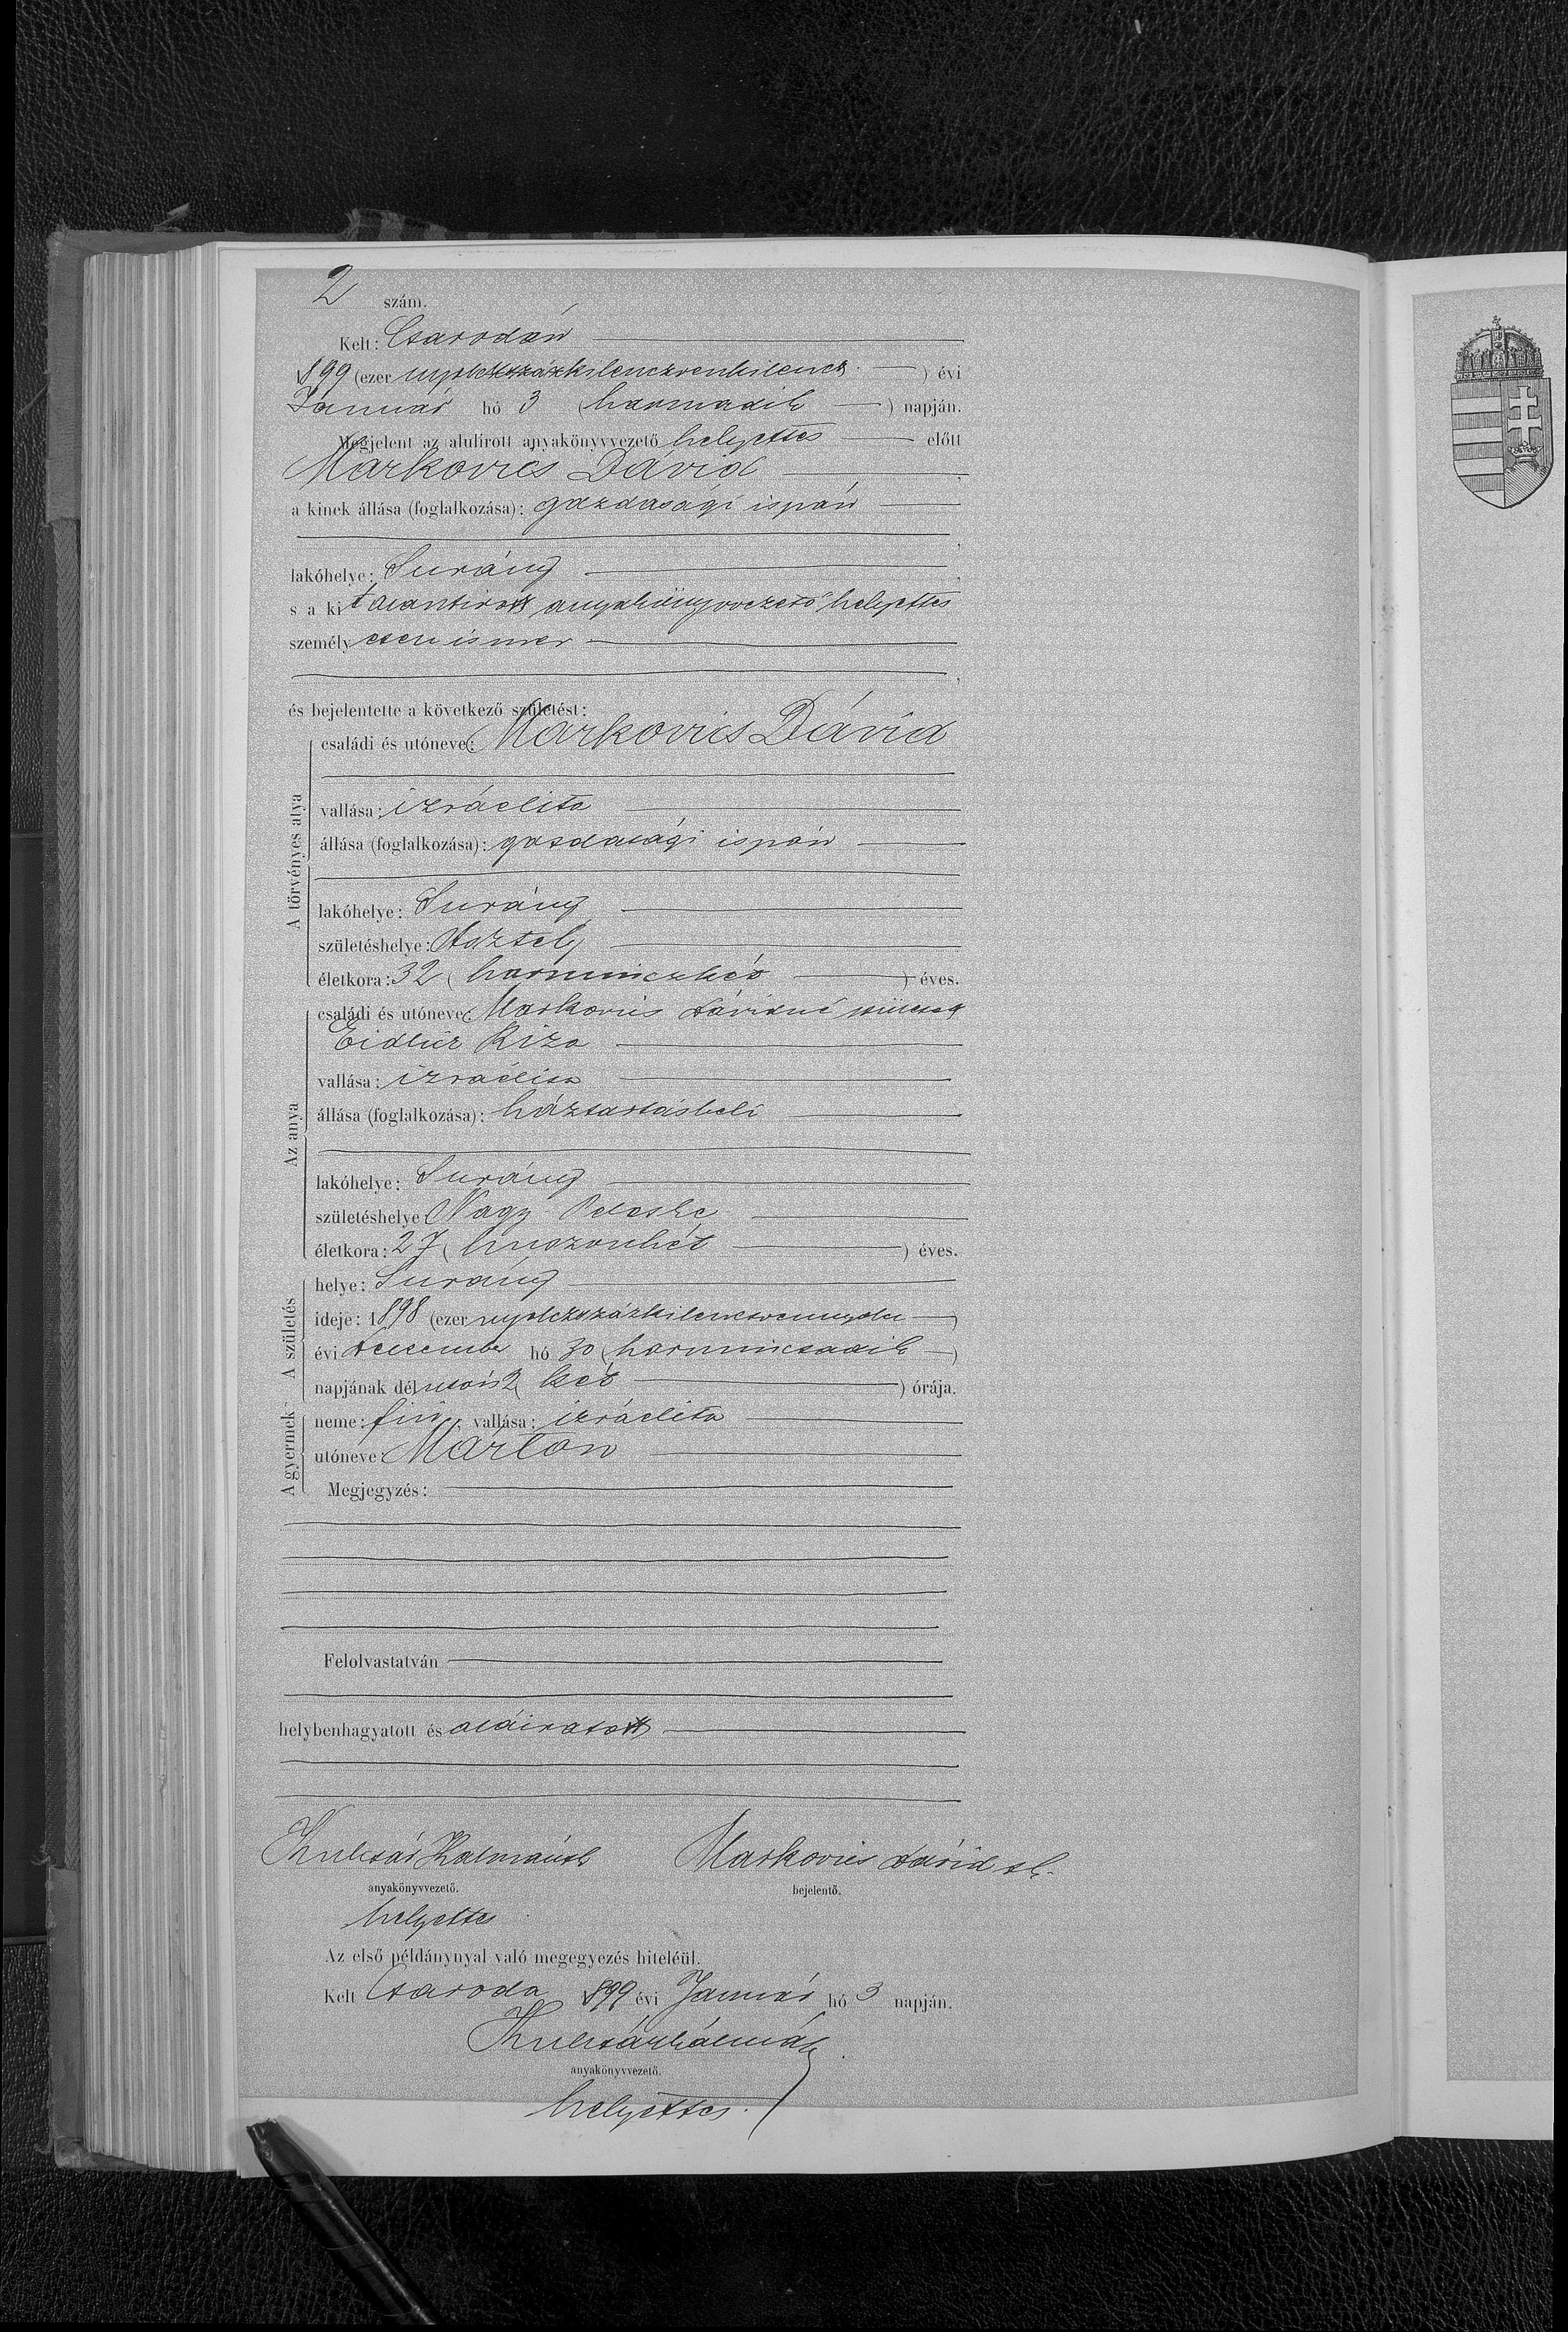 2 szám.
Kelt: Csarodán
1899 (ezer nyolczszázkilenczvenkilencz) évi
Január hó 3 (harmadik) napján.
Megjelent az alulirott anyakönyvvezető helyettes előtt
Markovics Dávid
a kinek állása (foglalkozása): gazdasági ispán
lakóhelye: Surány
s a kit alantirott anyakönyvvezető helyettes
személyesen ismer
és bejelentette a következő születést:
A törvényes atya
családi és utóneve: Markovics Dávid
vallása: izráelita
állása (foglalkozása): gazdasági ispán
lakóhelye: Surány
születéshelye: Asztely
életkora: 32 (harminczkét) éves.
Az anya
családi és utóneve: Markovics Dávidné született
Riza
vallása: izráelita
állása (foglalkozása): háztartásbeli
lakóhelye: Surány
születéshelye: Nagy Peleske
életkora: 27 (huszonhét) éves.
A születés
helye: Surány
ideje: 1898 (ezer nyolczszázkilenczvennyolcz)
évi deczember hó 30 (harminczadik)
napjának délutáni 2 (két) órája.
A gyermek
neme: fiú; vallása: izráelita
utóneve: Márton
Megjegyzés:
Felolvastatván
helybenhagyatott és aláiratott
Kulcsár Kálmán Markovics Dávid sk.
anyakönyvvezető. bejelentő.
helyettes
Az első példánynyal való megegyezés hiteléül.
Kelt Csaroda 1899 évi Január hó 3 napján.
Kulcsár Kálmán
anyakönyvvezető.
helyettes.